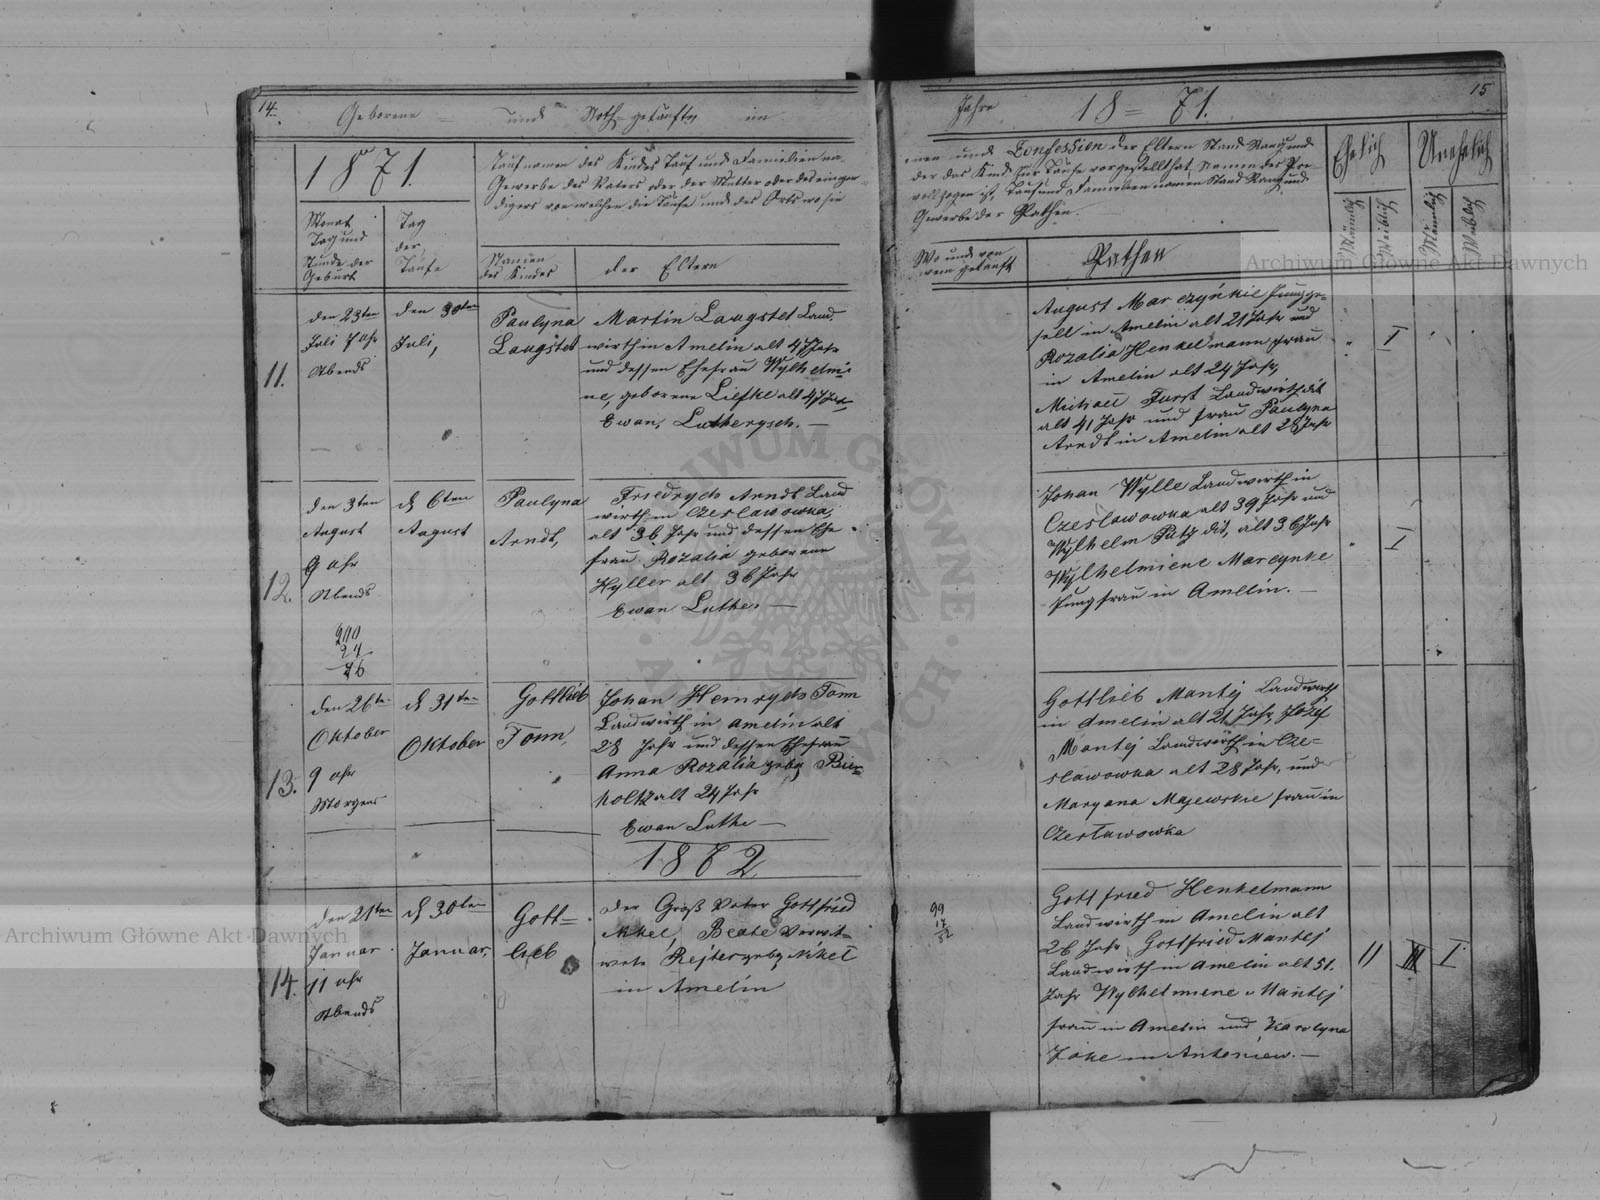 14.
Geborene und Noth-getaufte im
1871.
Taufnamen des Kindes Tauf und Familien na-
Gewerbe des Vaters oder der Mutter oder deseinigen
digers von welchen die Taufe und des Orts wo sie
Monat
Tag und
Stunde der
Geburt
Tag
der
Taufe
Namen
des Kindes
der Eltern
11.
den 23ten
Juli 7 uhr
Abends
den 30ten
Juli,
Paulyna
Laugstet
Martin Laugstet Land.
wirth in Amelin alt 47 Jahr
und dessen Ehefrau Wylhelmi-
ne, geborene Liefke alt 47 Jahr
Ewan, Lutherysch. —
12.
den 3ten
August
9 uhr
Abends
210
24
76
d 6ten
August
Paulyna
Arndt,
Friedrych Arndt Land
wirth in Czeslawowka,
alt 36 Jahr und dessen Ehe
frau Rozalia geborene
Hyller alt 36 Jahr
Ewan Luther —
13.
den 26ten
Oktober
9 uhr
Morgens
d 31ten
Oktober
Gottlieb
Tonn,
Johan Henrych Tonn
Landwirth in Amelin alt
28 Jahr und dessen Ehefrau
Anna Rozalia geby Bier-
holtz alt 24 Jahr
Ewan Luthe —
1872
14.
den 21ten
Januar
11 uhr
Abends
d 30ten
Januar,
Gott=
lieb
der Groß Vater Gottfried
Nikel, Beate Verwit-
wete Rejter geby Nikel
in Amelin
Jahre 18=71.
15
men und Confession der Eltern Stand Rang und
der das Kind zur Taufe vorgestellt hat, Namen des Pre-
vollzogen ist, Tauf und Familien namen Stand Rang und
Gewerbe der Pathen.
Wo und von
wem getauft
Pathen
Ehelich
Unehelich
Mänlich
Weiblich
Mänlich
Weiblich
August Marczyńkie Jungge-
sell in Amelin alt 21 Jahr und
Rozalia Henkelmann frau
in Amelin alt 24 Jahr,
Michael Furst Landwirth dit
alt 41 Jahr und frau Paulyna
Arndt in Amelin alt 28 Jahr
I
Johan Wylle Landwirth in
Czeslawowka alt 39 Jahr und
Wylhelm Patz dit, alt 36 Jahr
Wylhelmiene Marcynke
Jungfrau in Amelin. —
I
Gottlieb Mantej Landwirth
in Amelin alt 21 Jahr, Jòzef
Mantej Landwirth in Cze=
slawowka alt 28 Jahr, und
Maryana Majewskie frau in
Czesławowka
99
17
52
Gottfried Henkelmann
Landwirth in Amelin alt
26 Jahr Gottfried Mantej
Landwirth in Amelin alt 51.
Jahr Wylhelmiene Mantej
frau in Amelin und Karolyna
Zoke in Antoniew. —
II III I
Archiwum Główne Akt Dawnych
Archiwum Główne Akt Dawnych
ARCHIWUM GŁÓWNE AKT DAWNYCH